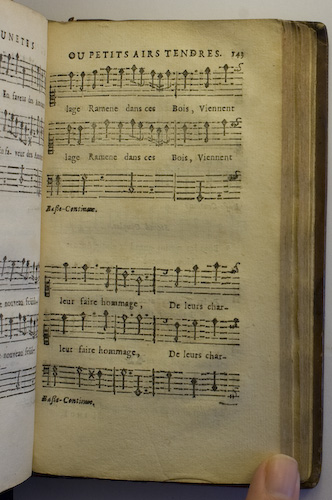 UNETES
En faveur des
fa- veur des
e nouveau feuil-
e nouveau feuil-
OU PETITS AIRS TENDRES. 143
lage Ramene dans ces Bois, Viennent
lage Ramene dans ces Bois, Viennent
Basse-Continue.
leur faire hommage, De leurs char-
leur faire hommage, De leurs char-
Basse-Continue.